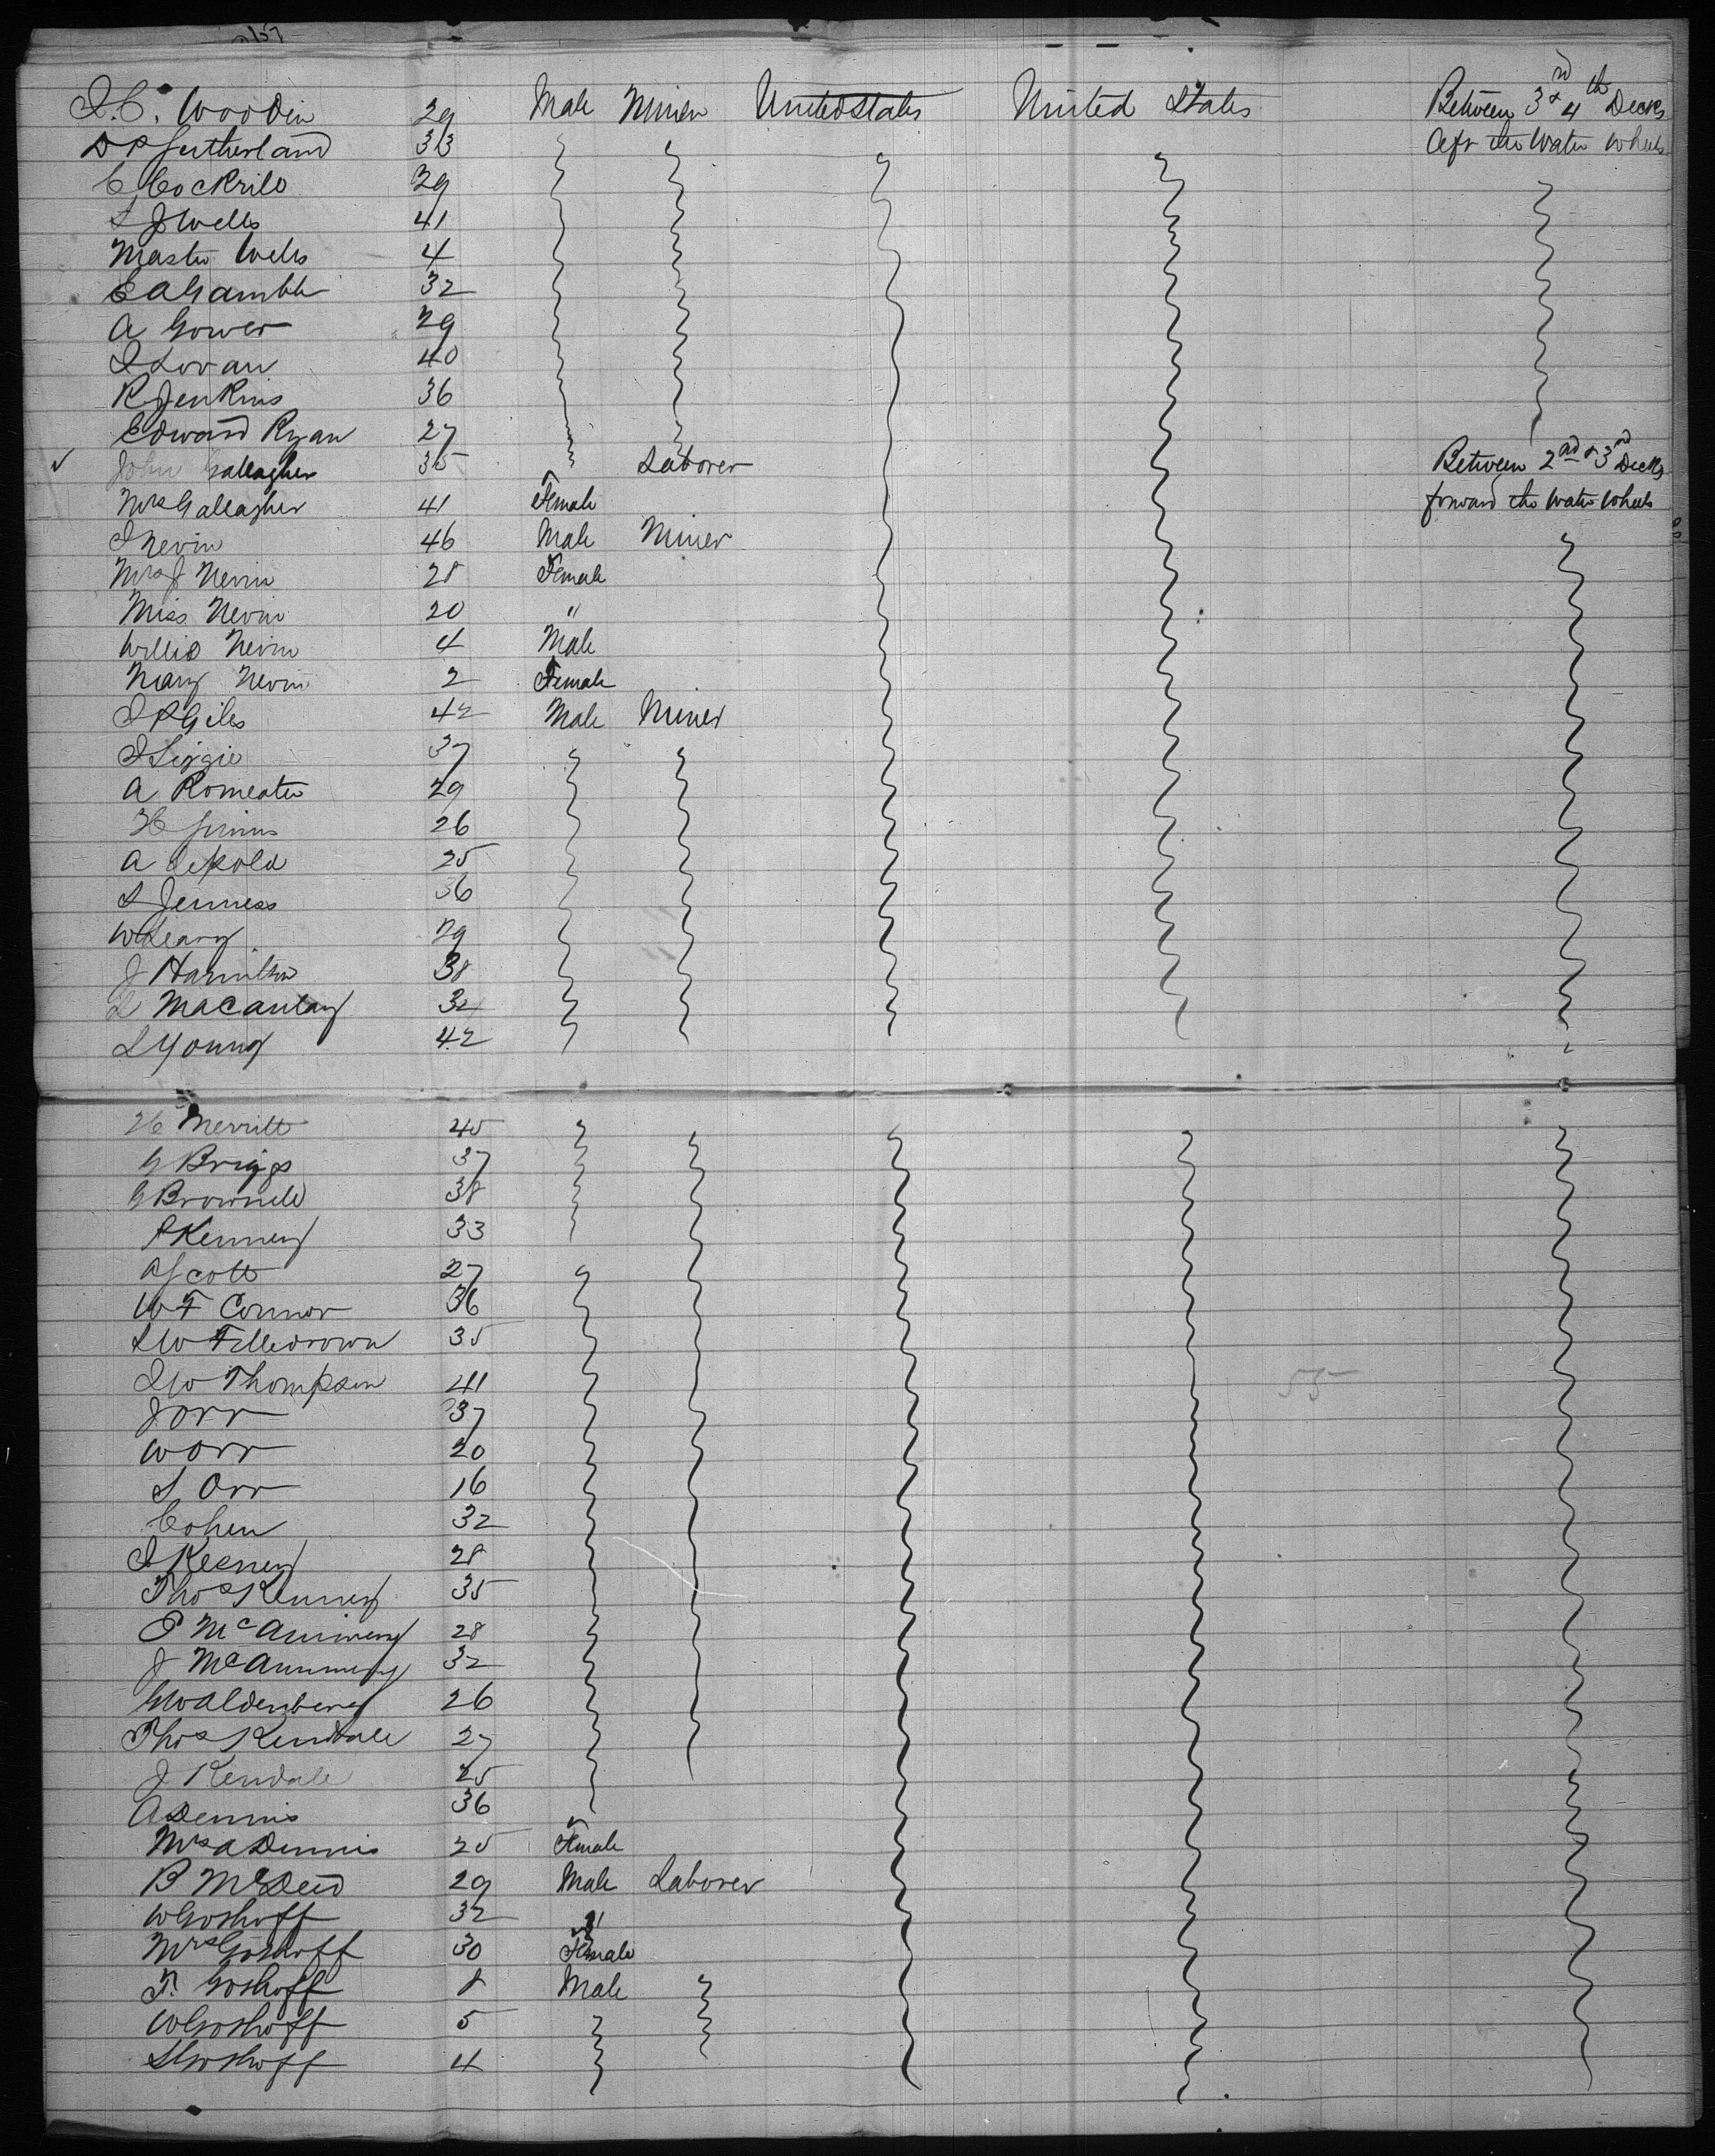 J. C. Woodin 29 Male Miner United States United States Between 3rd & 4th Decks
D P Sutherland 33 Aft the Water Wheels
C Cockrill 39
S J Wells 41
Master Wells 4
E A Gamble 32
A Gower 29
J Lovan 40
R Jenkins 36
Edward Ryan 27
John Gallagher 35 Laborer Between 2nd & 3rd Decks
Mrs Gallagher 41 Female forward the Water Wheels
J Nevin 46 Male Miner
Mrs J Nevin 28 Female
Miss Nevin 20 "
Willie Nevin 4 Male
Mary Nevin 2 Female
J P Giles 42 Male Miner
37
A 29
H 26
A 25
S Jenness 36
W Leary 29
J Hamilton 38
L Macaulay 34
L Young 42
H Merritt 45
G Briggs 37
G Brownell 38
P Kenney 33
A Scott 27
W F Connor 36
L W Fillebrown 35
J W Thompson 41
J Orr 37
W Orr 20
S Orr 16
Cohen 32
J Kesney 28
Thos Kenney 35
P 28
J 32
G Waldenberg 26
Thos Kendall 27
J Kendale 25
A Dennis 36
Mrs A Dennis 25 Female
B McDeid 29 Male Laborer
W Goshoff 32 "
Mrs Goshoff 30 Female
F. Goshoff 8 Male
W Goshoff 5
S Goshoff 4
55